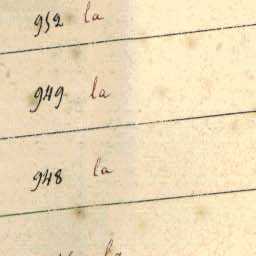 952 la
949 la
948 la
la